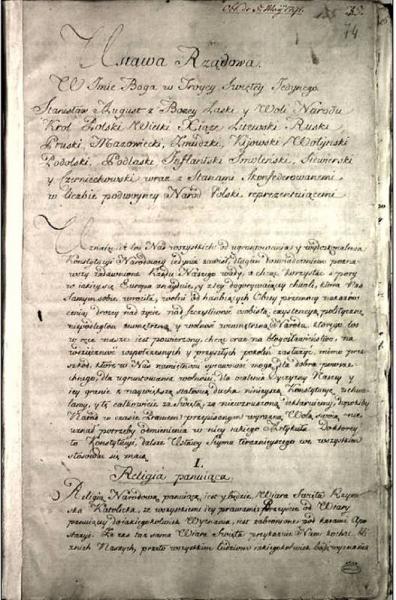 Ustawa Rządowa.
W Imie Boga w Troycy Swiętey Jedynego.
Stanisław August z Bożey Łaski y Woli Narodu
Krol Polski Wielki Xiąże Litewski Ruski
Pruski, Mazowiecki, Zmudzki, Kijowski Wołyński
Podolski, Podlaski Inflantski Smoleński, Siewierski
y Czerniechowski, wraz z Stanami Skonfederowanemi
w liczbie podwoyney Narod Polski reprezentuiącemi.
Uznaiąc, iż los Nas wszystkich od ugruntowania y wydoskonalenia
Konstytucyi Narodowey iedynie zawisł, długim doświadczeniem pozna-
wszy zadawnione Rządu Naszego wady, a chcąc korzystać z pory
w iakiey się Europa znayduie, y z tey dogorywaiącey chwili, ktora Nas
Samym sobie wrociła, wolni od hańbiących Obcey przemocy nakazow
ceniąc drożey nad życie, nad szczęśliwość osobistą, exystencyą polityczną
niepodległość zewnętrzną, y wolność wewnętrzną Narodu, ktorego los
w ręce nasze iest powierzony, chcąc oraz na błogosławieństwo, na
wdzięczność wspołczesnych y przyszłych pokoleń zasłużyć, mimo prze-
szkod, ktore w Nas namiętności sprawować mogą, dla dobra powsze-
chnego, dla ugruntowania wolności, dla ocalenia Oyczyzny Naszey y
iey granic z naywiększą stałością ducha ninieyszą Konstytucyę uchwa-
lamy, y tę całkowicie za świętą, za niewzruszoną deklaruiemy, dopokiby
Narod w czasie Prawem przepisanym wyraźną Wolą swoią nie
uznał potrzeby odmienienia w niey iakiego Artykułu. Do ktorey
to Konstytucyi, dalsze Ustawy Seymu teraznieyszego we wszystkim
stosować się maią.
I.
Religia panuiąca.
Religią Narodową panuiącą iest y będzie Wiara Swięta Rzym-
ska Katolicka, ze wszystkiemi iey prawami. Przeyście od Wiary
panuiącey do iakiegokolwiek Wyznania, iest zabronione pod karami Apo-
stazyi. Że zaś taż sama Wiara Swięta przykazuie Nam kochać bli-
źnich Naszych, przeto wszystkim ludziom iakiegokolwiek bądź wyznania